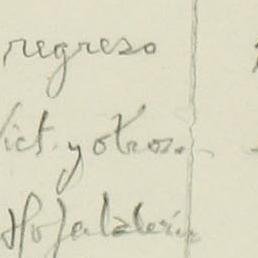 regreso
Vict. y otros.
Hojalatería